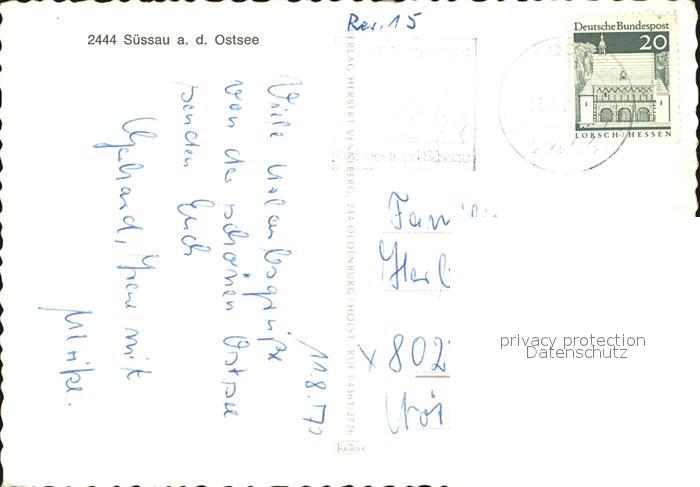 2444 Süssau a. d. Ostsee
Rev. 15
Deutsche Bundespost
20
LORSCH/HESSEN
Ostseestrand Süssau
VERLAG HERBERT 244 OLDENBURG/HOLST. RUF 04361/2726
11.8.70
Viele Urlaubsgrüße
von der schönen Ostsee
senden Euch
Gerhard, Irene mit
Ulrike.
Fam
x 802
privacy protection
Datenschutz